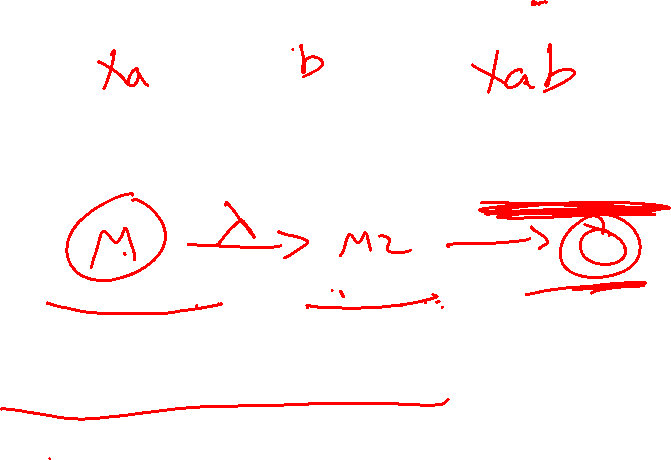 xa b xab
M λ M2